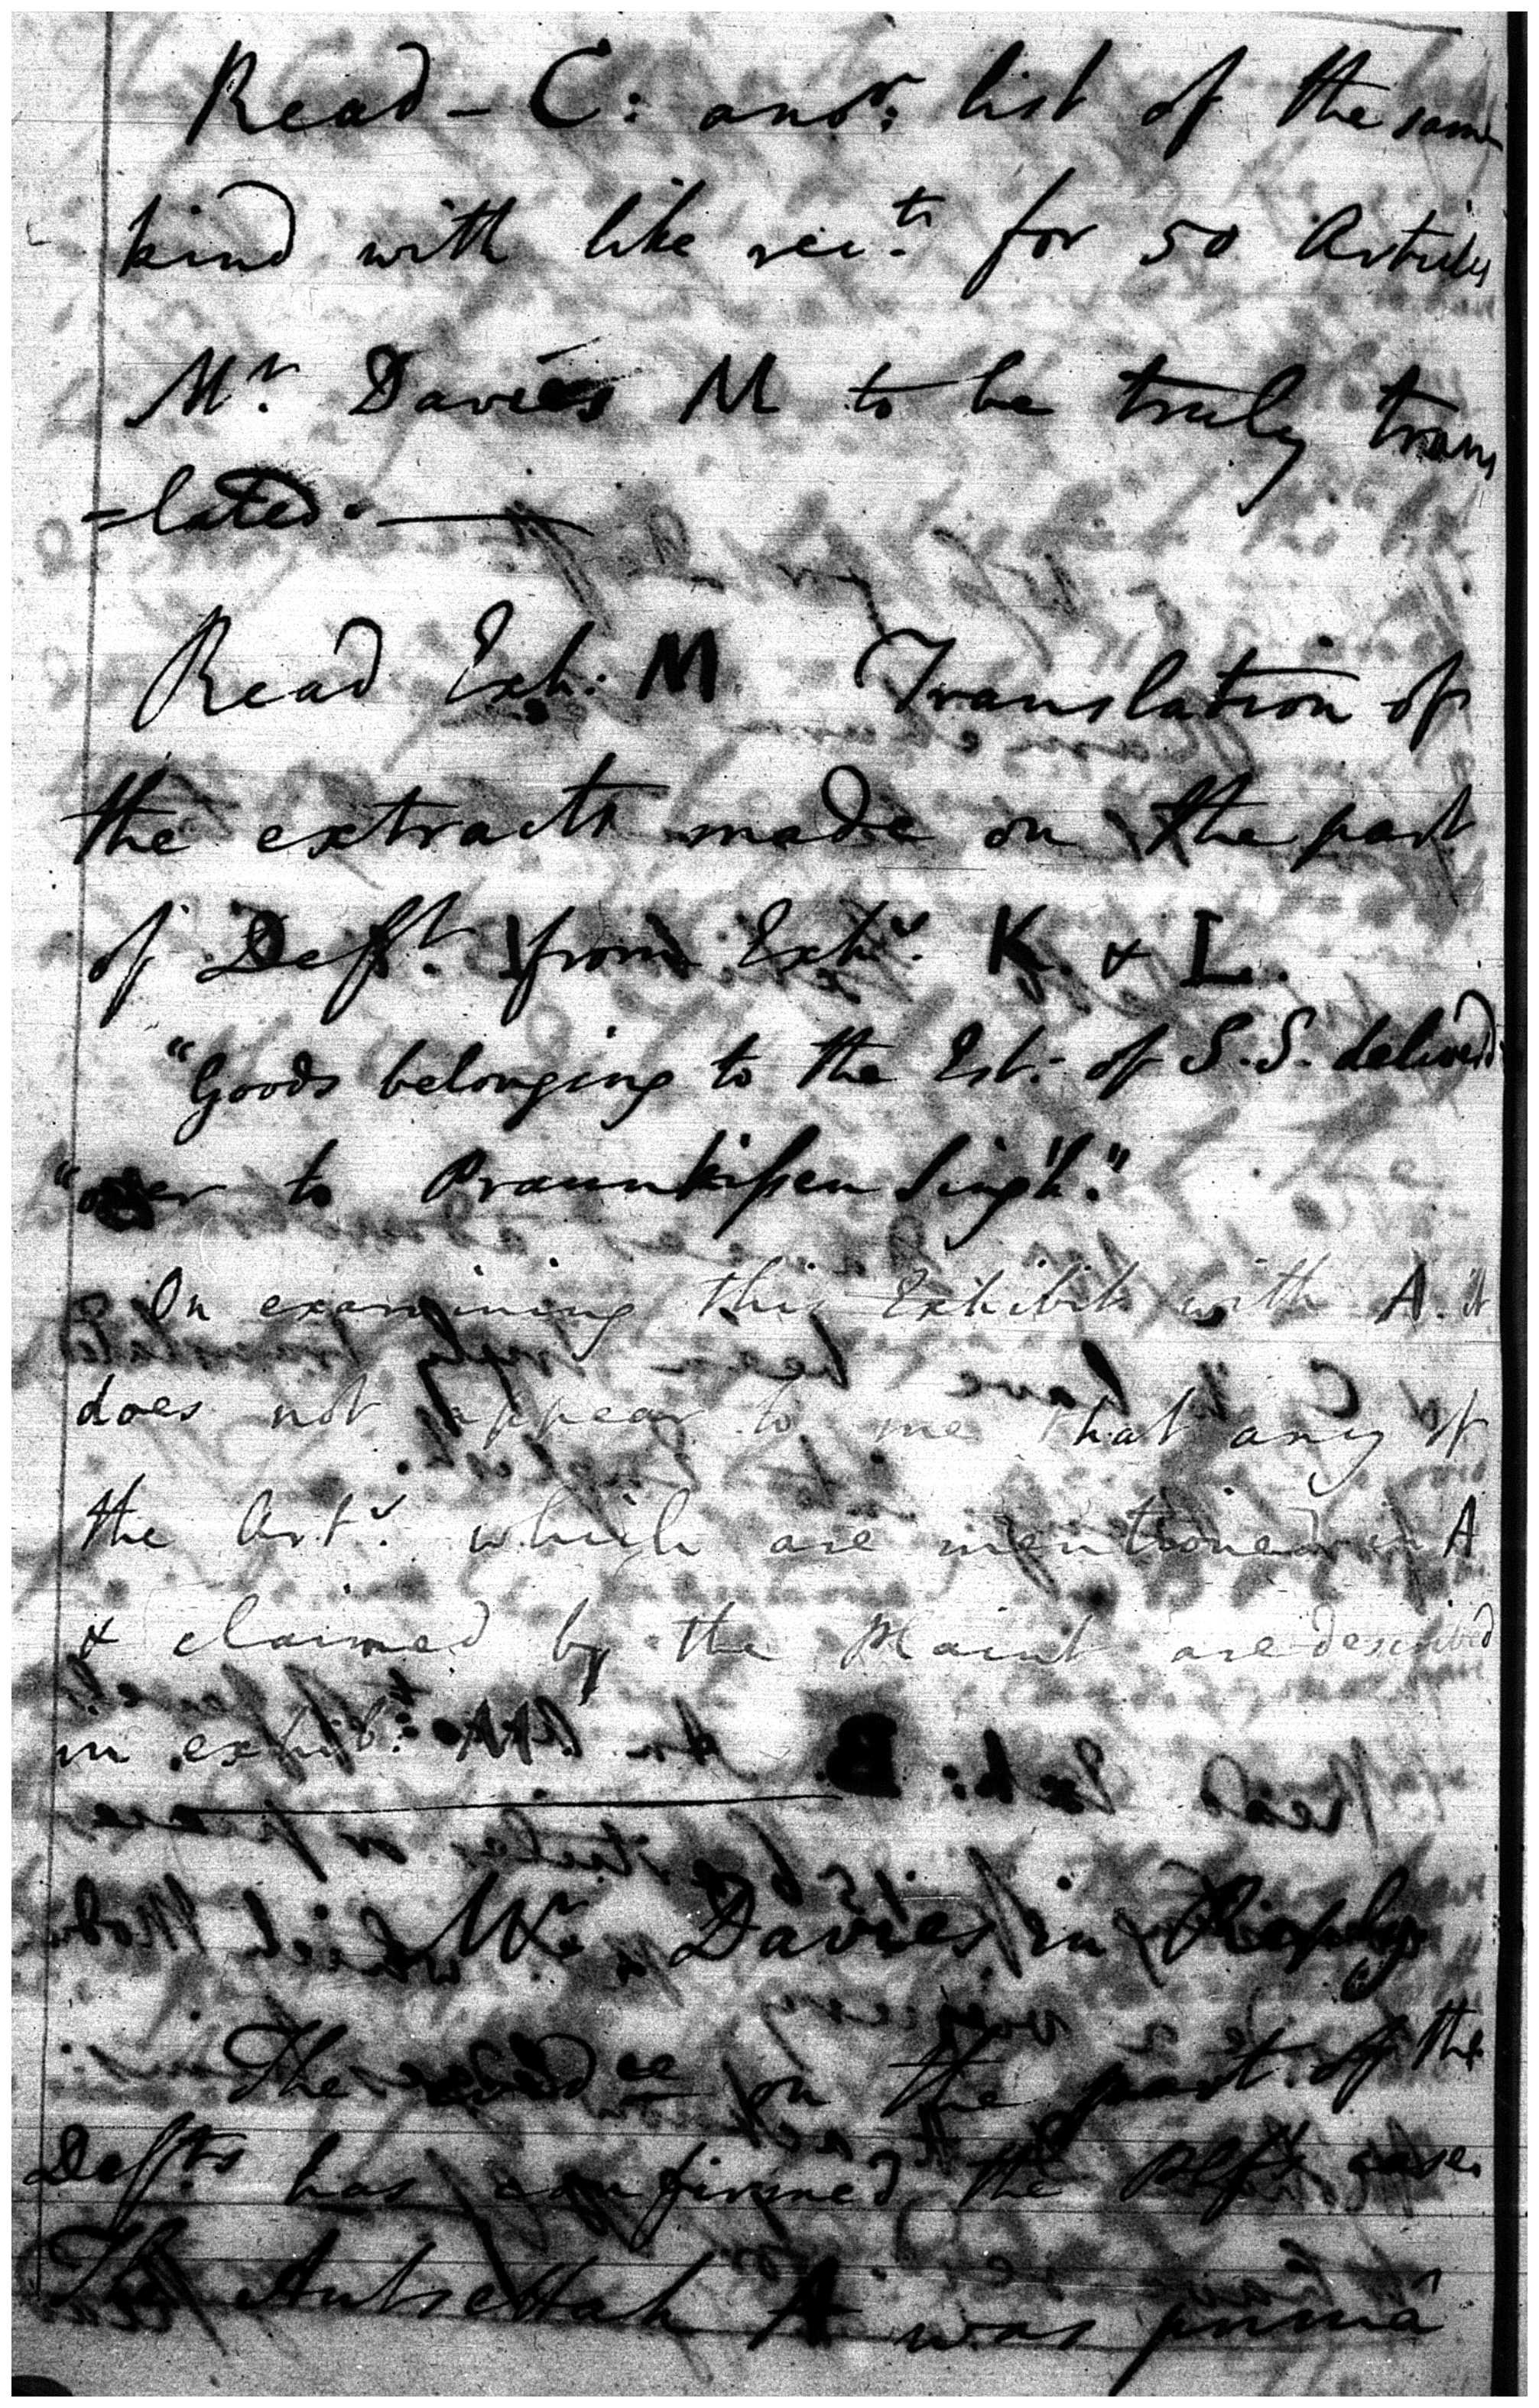 Read - C: anoʳ: list of the same
kind with like recᵗˢ for 50 Articles
Mʳ. Davies M to be truly trans
=lated. —
Read Exh: M Translation of
the extracts made on the part
of Defᵗ. from Exhˢ. K. & L.
"Goods belonging to the Est: of S.S. deliverd
"over to Praunkissen Singh."
On examining this Exhibit with A. it
does not appear to me that any of
the Artˢ. which are mentioned in A
& claimed by the Plaint are described
in exhibᵗ:
Mʳ. Davies in Reply
The on the part of the
Defᵗˢ has confirmed the Plfs case.
The A was prima